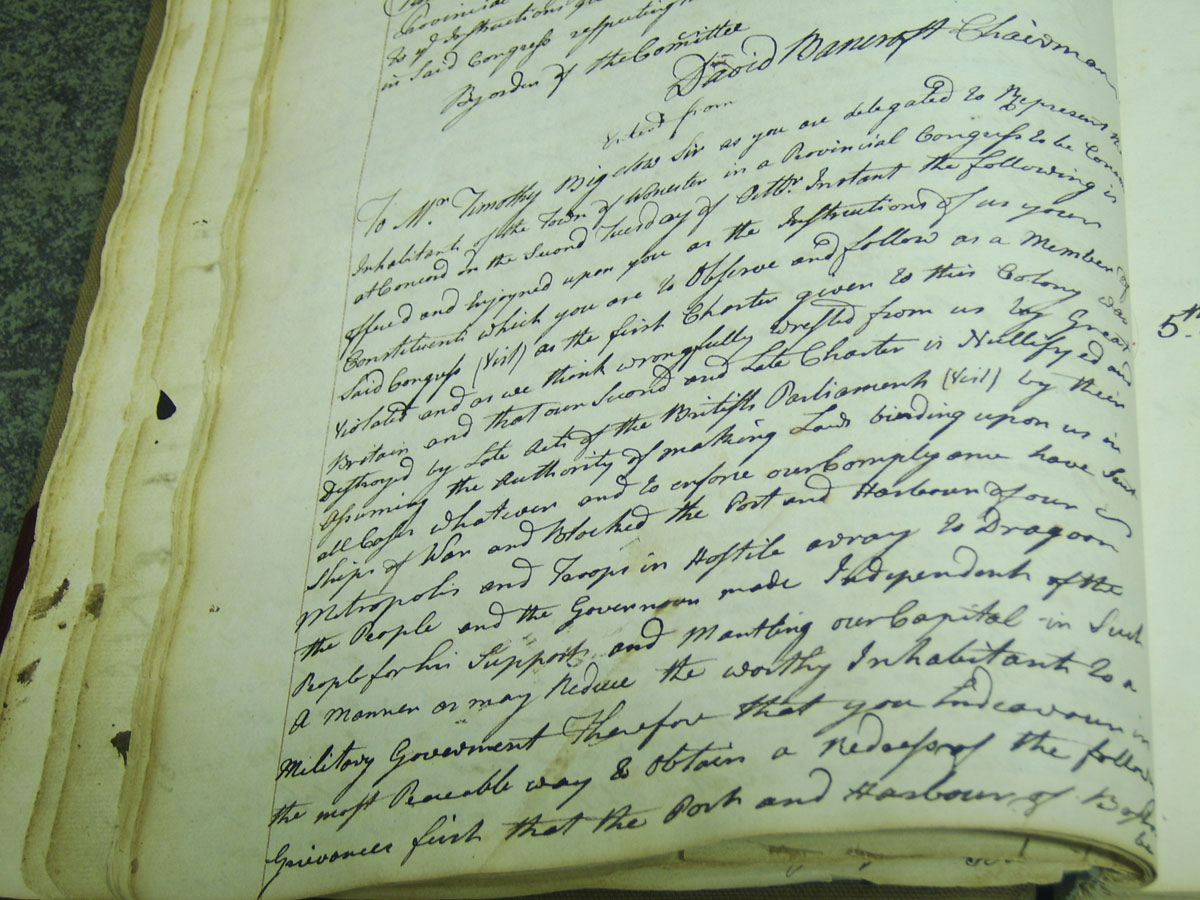 Provincial
in Said Congress respecting
By order of the Comittee
David Bancroft Chairman
from
To Mr. Timothy Bigelow Sir as you are delegated to Represent
Inhabitants of the Town of Worcester in a Provincial Congress to be
at Concord on the Second Tuesday of Octbr. Instant the following is
offered and Enjoyned upon you as the Instructions of us your
Constituents which you are to Observe and follow as a Member of
Said Congress (Vist) as the first Charter given to this Colony was
Violated and as we think wrongfully wrested from us by Great
Britain and that our Second and Late Charter is Nullifyed and
Destroyed by Late Acts of the British Parliament (Vist) by their
Assuming the Authority of making Laws binding upon us in
all Cases whatever and to enforce our Complyance have Sent
Ships of War and Blocked the Port and Harbour of our
Metropolis and Troops in Hostile array to Dragoon
the People and the Governour made Independent of the
People for his Support and Mantling our Capital in Such
A manner as may Reduce the worthy Inhabitants to a
Military Goverment Therefore that you Endeavour in
the most Peaceable way to Obtain a Redress of the follow
Grievances first that the Port and Harbour of Boston
be
5th